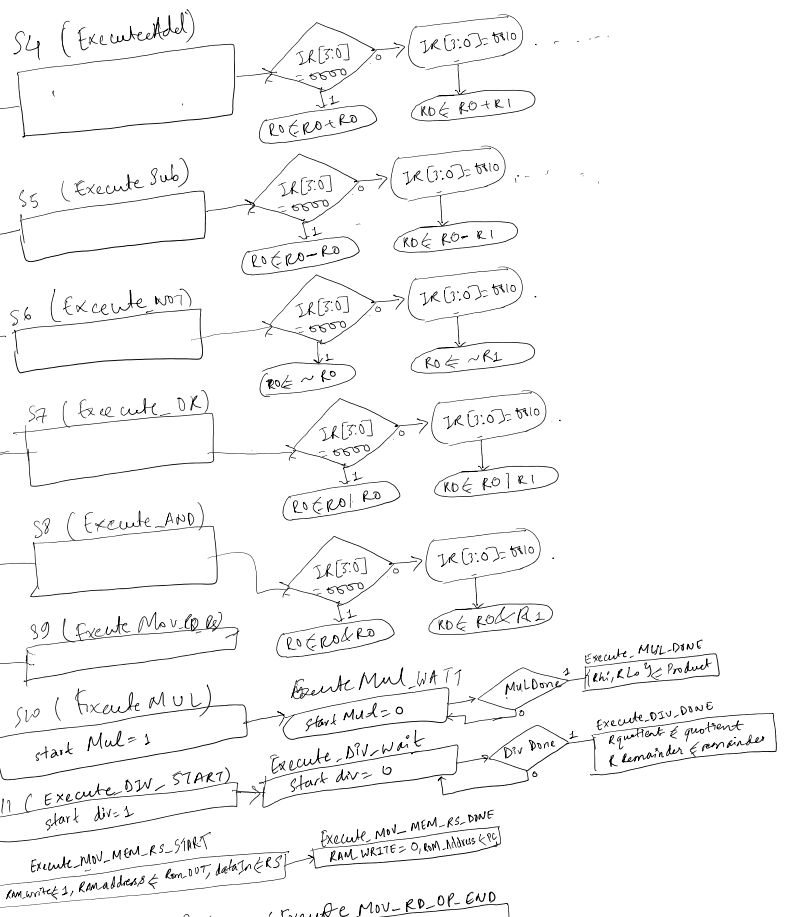 S4 (ExecuteAdd)
IR[3:0]
= 0000
0
IR[3:0]=
1
R0⇐R0+R0
R0⇐ R0+R1
S5 (Execute Sub)
IR[3:0]
= 0000
0
IR[3:0]=
1
R0⇐R0-R0
R0⇐ R0-R1
S6 (Excecute_NOT)
IR[3:0]
= 0000
0
IR[3:0]=
1
R0⇐ ~R0
R0⇐ ~R1
S7 (Excecute_OR)
IR[3:0]
= 0000
0
IR[3:0]=
1
R0⇐R0| R0
R0⇐ R0 | R1
S8 (Execute_AND)
IR[3:0]
= 0000
0
IR[3:0]=
1
R0⇐R0&R0
R0⇐ R0&R1
S9 (Execute Mov
S10 (Execute MUL)
start Mul= 1
Execute Mul_WAIT
start Mul=0
MulDone
1
0
Execute_MUL-DONE
{Rhi, RLo}⇐ Product
11 (Execute_DIV_START)
start div=1
Execute_Div_Wait
start div= 0
Div Done
1
0
Execute_DIV_DONE
Rquotient ⇐ quotient
R Remainder ⇐ remainder
Execute_MOV_MEM_RS_START
RAM_write⇐1, RAM address ⇐ Rom_OUT, dataIn⇐RS
Execute_MOV_MEM_RS_DONE
RAM_WRITE= 0, ROM_Address⇐PC
Execute MOV_RD_OP_END